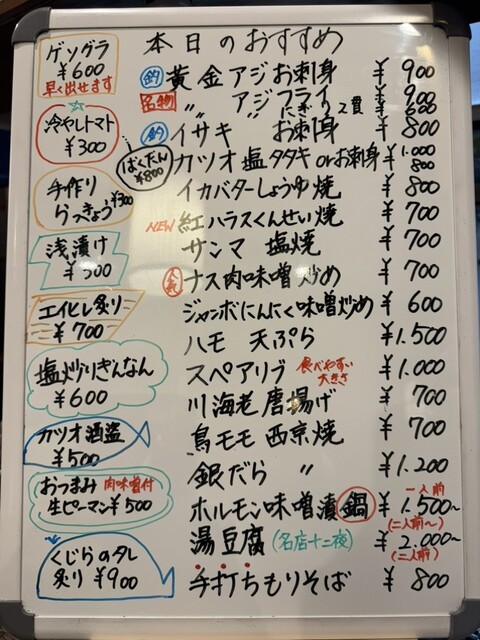 本日のおすすめ
ゲソグラ
¥600
早く出せます
冷やしトマト
¥300
ばくだん
¥800
手作り
らっきょう ¥300
浅漬け
¥500
エイヒレ炙り
¥700
塩炒りぎんなん
¥600
カツオ酒盗
¥500
おつまみ 肉味噌付
生ピーマン ¥500
くじらのタレ
炙り ¥900
釣 黄金アジ お刺身 ¥900
名物 〃 アジフライ ¥900
〃 にぎり 2貫 ¥600
釣 イサキ お刺身 ¥800
カツオ 塩タタキ orお刺身 ¥1.000 800
イカバターしょうゆ焼 ¥800
NEW 紅ハラスくんせい焼 ¥700
サンマ 塩焼 ¥700
人気 ナス肉味噌炒め ¥700
ジャンボにんにく味噌炒め ¥600
ハモ 天ぷら ¥1.500
スペアリブ 食べやすい大きさ ¥1.000
川海老 唐揚げ ¥700
鳥モモ 西京焼 ¥700
銀だら 〃 ¥1.200
ホルモン味噌漬鍋 一人前 ¥1.500〜 (二人前〜)
湯豆腐 (名店十二夜) ¥2.000〜 (二人前)
手打ちもりそば ¥800